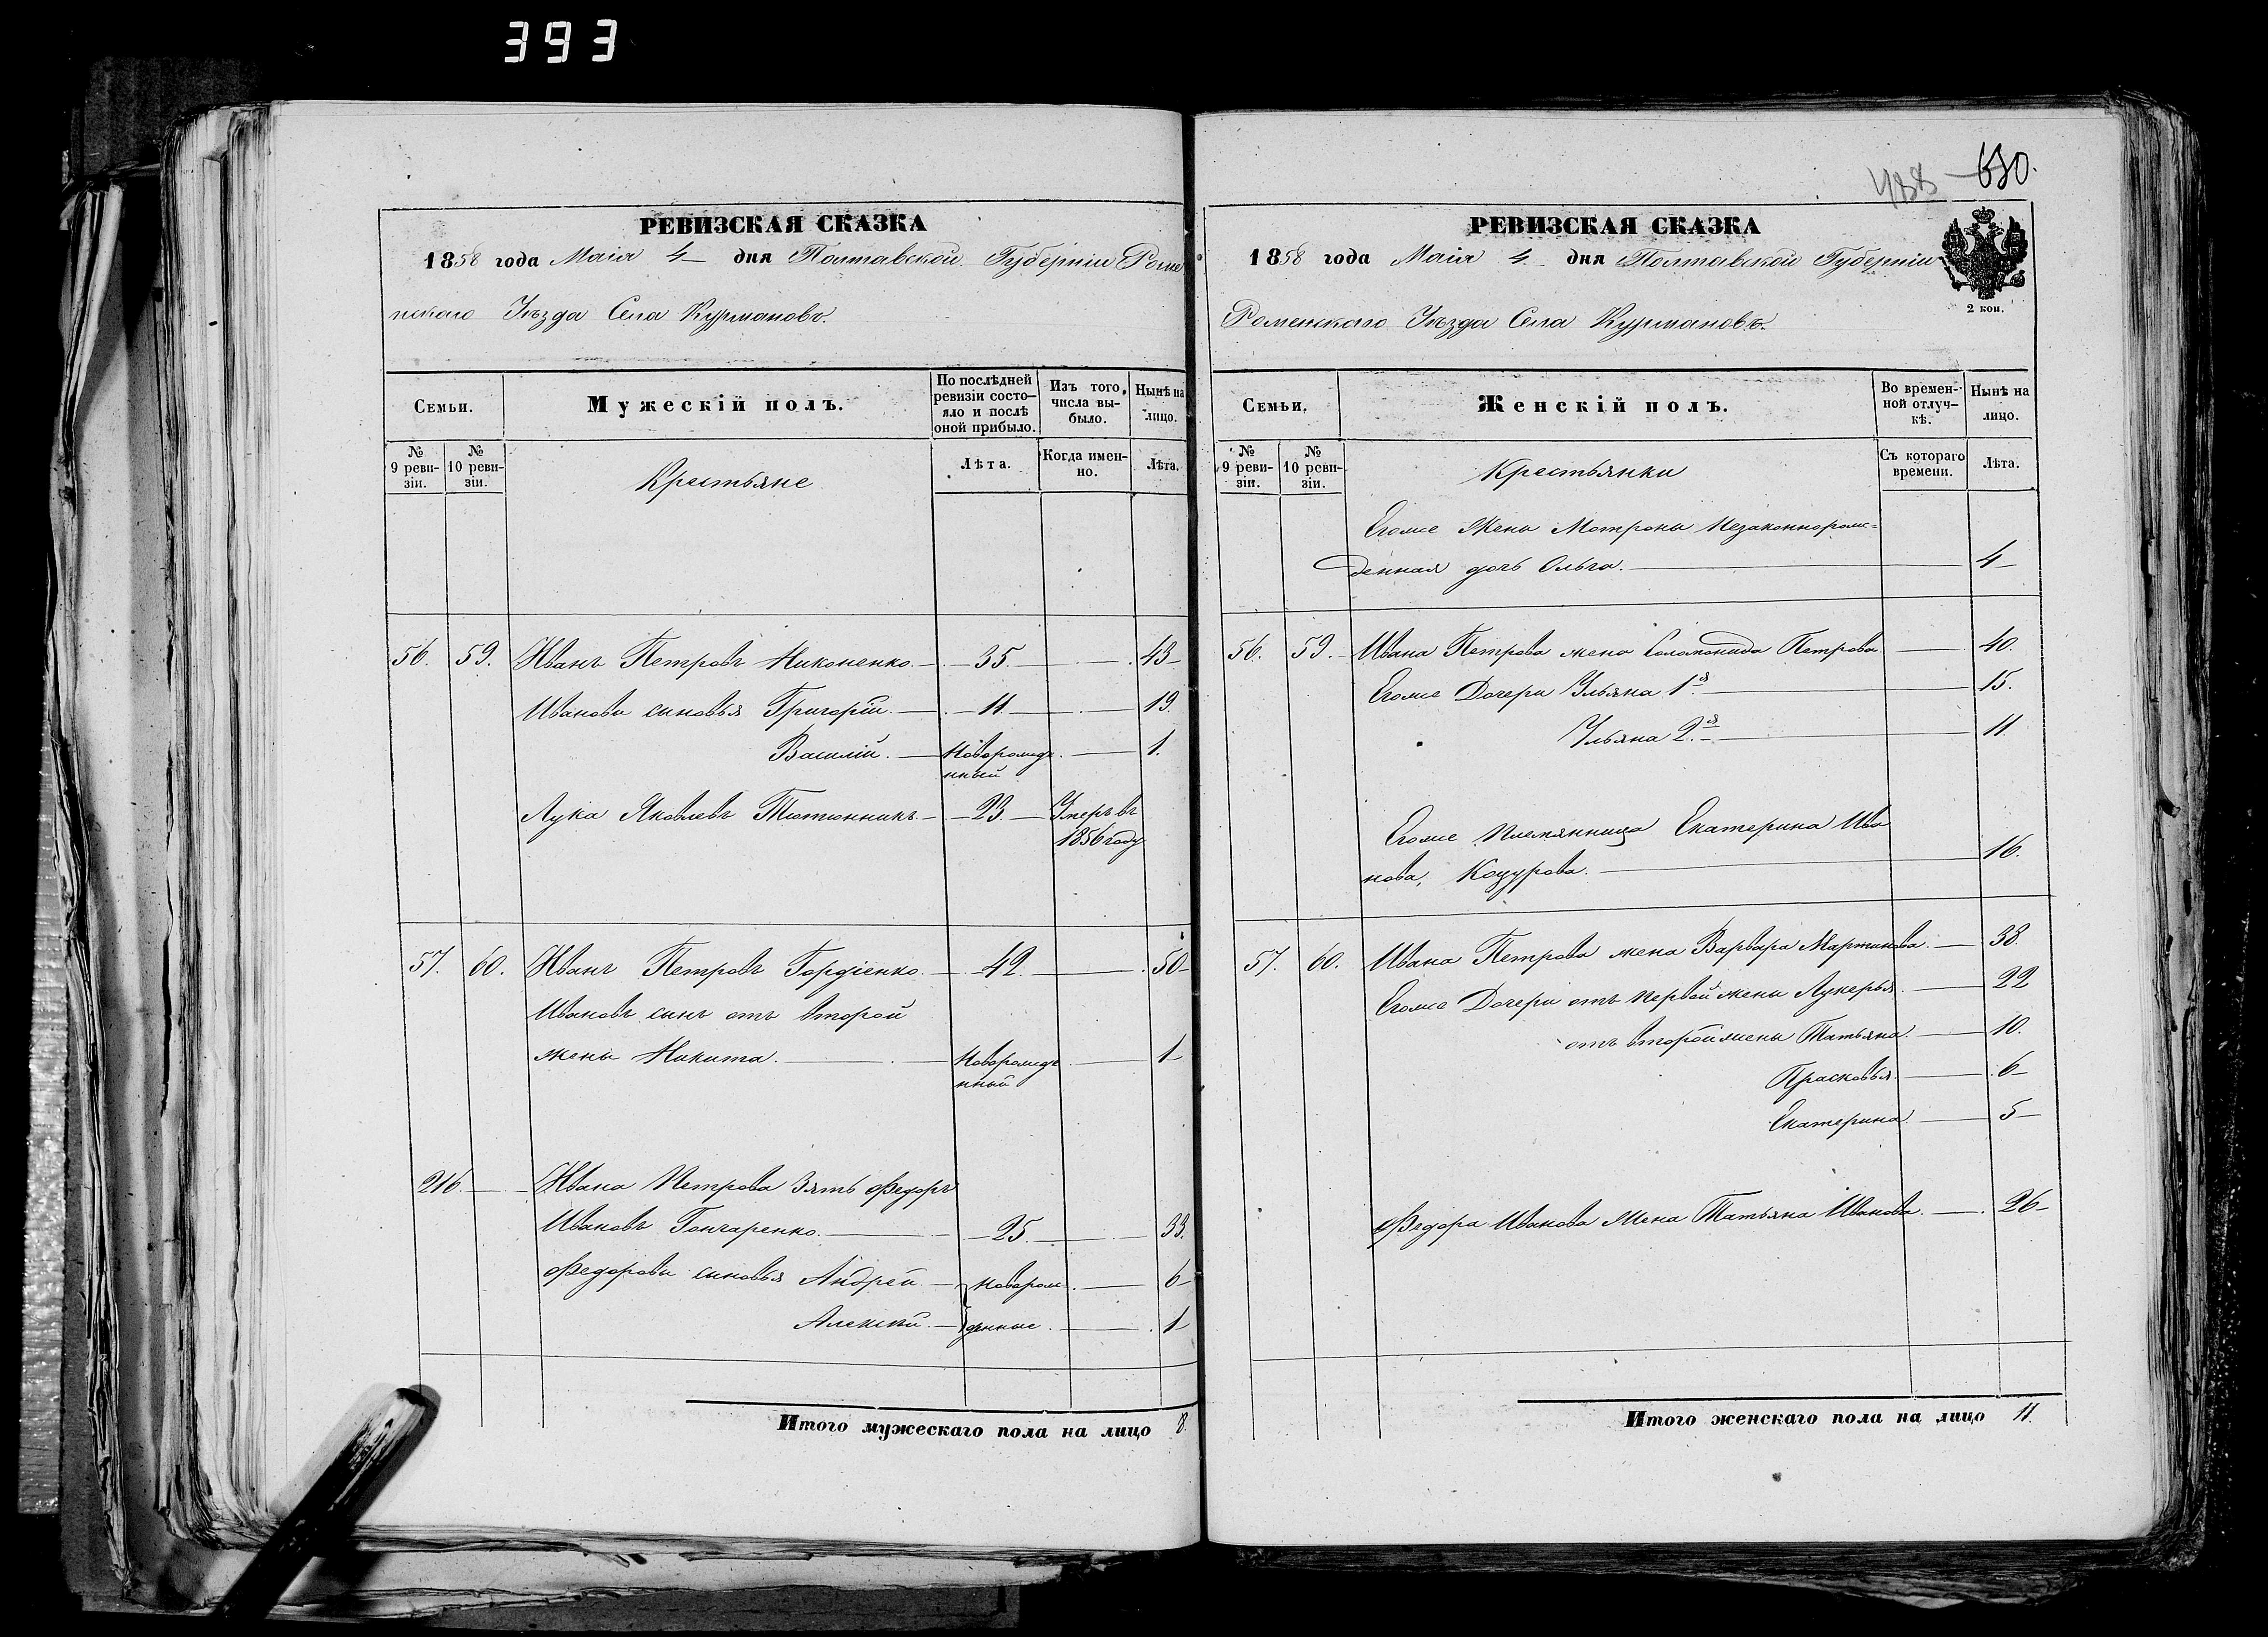 393
РЕВИЗСКАЯ СКАЗКА
1858 года Маія 4 дня Полтавской Губерніи Роме
нскаго Уѣзда Села Курмановъ.
Семьи.
Мужескій полъ.
По послѣдней
ревизіи состо-
яло и послѣ
оной прибыло.
Изъ того
числа вы-
было.
Нынѣ на
лицо.
№
9 реви-
зіи.
№
10 реви-
зіи.
Крестьяне
Лѣта.
Когда имен-
но.
Лѣта.
56. 59. Иванъ Петровъ Никоненко. 35. 43
Ивановы сыновья Григорій. 11. 19.
Василій. Новорожде 1.
нный
Лука Яковлевъ Тютюнникъ 23. Умеръ въ
1856 году
57. 60. Иванъ Петровъ Гордіенко. 42. 50
Ивановъ сынъ отъ второй
жены Никита. Новорожде 1
нный
216. Ивана Петрова Зять Федоръ
Ивановъ Гончаренко. 25. 33.
Федоровы сыновья Андрей Новорож 6
Алексѣй. денные. 1
Итого мужескаго пола на лицо 8.
488 630.
РЕВИЗСКАЯ СКАЗКА
1858 года Маія 4 дня Полтавской Губерніи
2 коп.
Роменскаго Уѣзда Села Курмановъ.
Семьи.
Женскій полъ.
Во времен-
ной отлуч-
кѣ.
Нынѣ на
лицо.
№
9 реви-
зіи.
№
10 реви-
зіи.
Крестьянки
Съ котораго
времени.
Лѣта.
Егоже Жены Мотроны Незаконнорож=
денная дочь Ольга. 4
56. 59. Ивана Петрова жена Соломонида Петрова 40.
Егоже Дочери Ульяна 1я 15.
Ульяна 2.я 11
Егоже племянница Екатерина Ива
нова, Коцурова. 16.
57. 60. Ивана Петрова жена Варвара Мартинова. 38.
Егоже Дочери отъ первой жены Лукерья. 22
отъ второй жены Татьяна. 10.
Прасковья. 6
Екатерина. 5
Федора Иванова Жена Татьяна Иванова. 26
Итого женскаго пола на лицо 11.